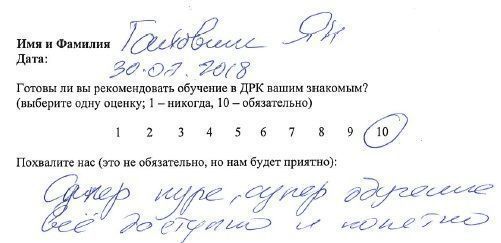 Имя и Фамилия Гаковик Ян
Дата:
30.07.2018
Готовы ли вы рекомендовать обучение в ДРК вашим знакомым?
(выберите одну оценку; 1 – никогда, 10 – обязательно)
1 2 3 4 5 6 7 8 9 10
Похвалите нас (это не обязательно, но нам будет приятно):
Супер, супер обучение
всё доступно и понятно